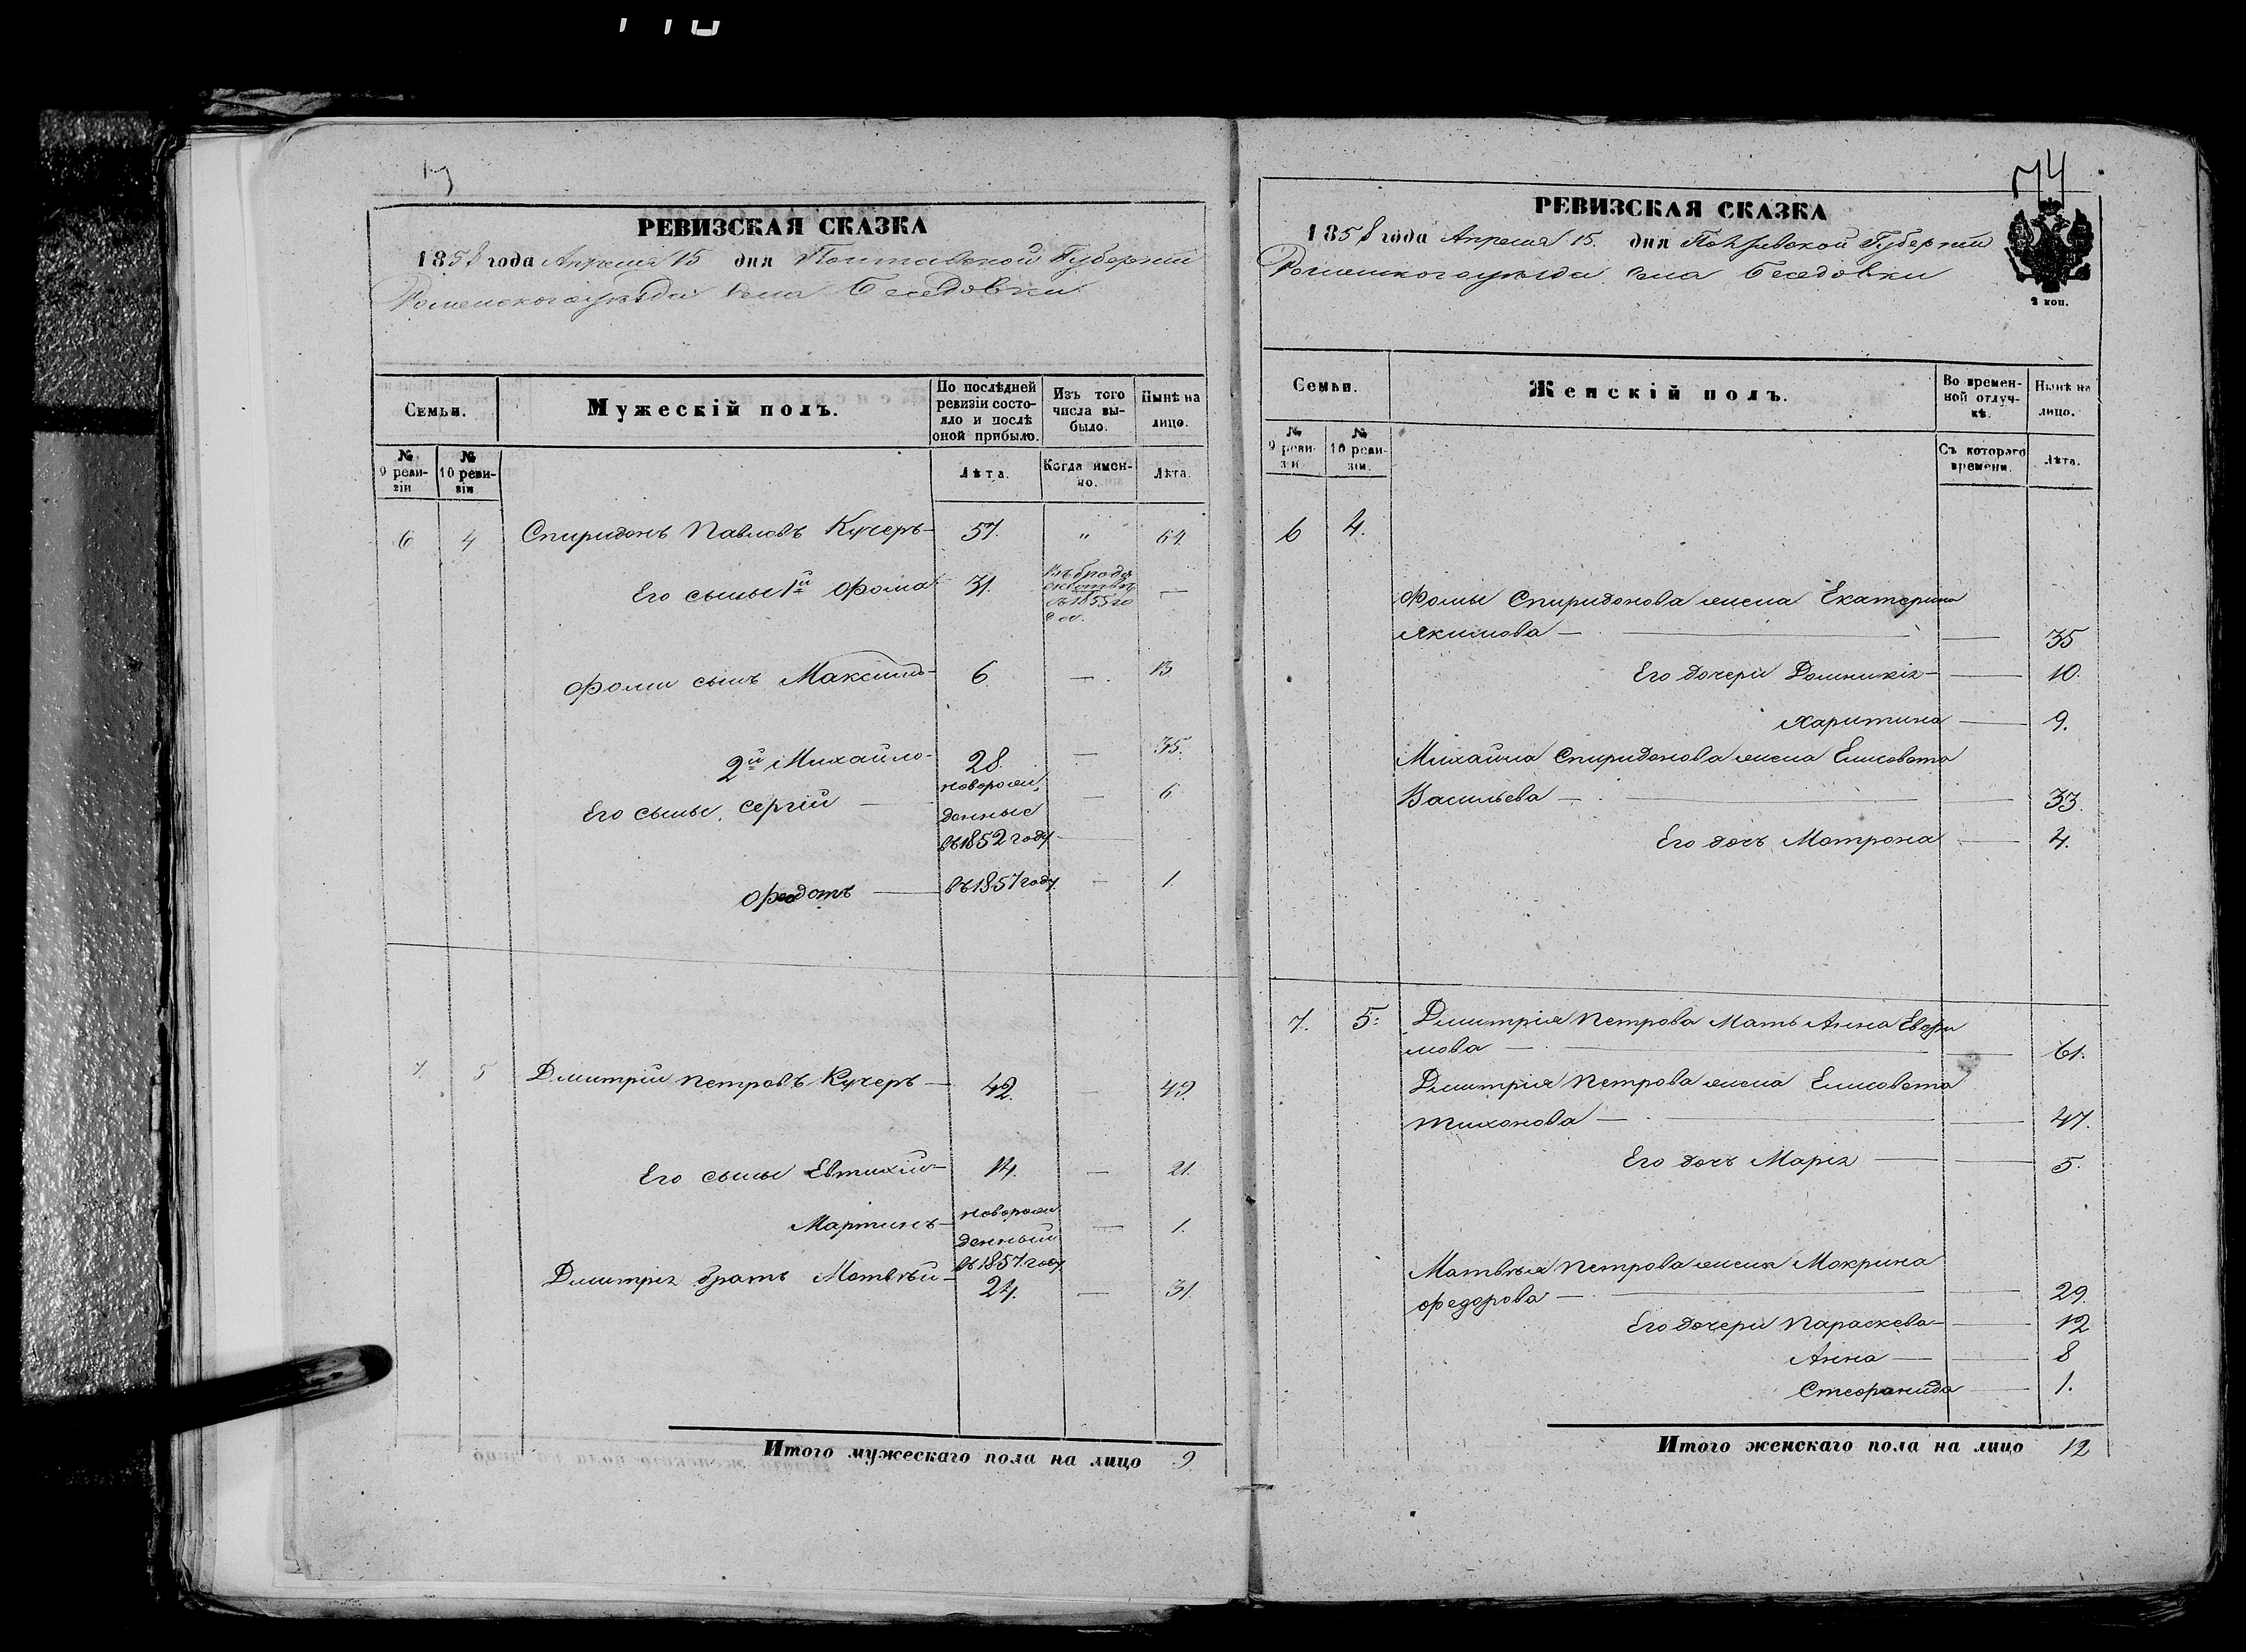 РЕВИЗСКАЯ СКАЗКА
1858 года Апреля 15 дня Полтавской Губернии
Роменского уезда Села Беседовки
Семьи.
Мужескій полъ.
По послѣдней ревизіи состояло и послѣ оной прибыло.
Изъ того числа выбыло.
Нынѣ на лицо.
№ 9 ревизіи
№ 10 ревизіи
Лѣта.
Когда именно.
Лѣта.
6 4 Спиридонъ Павловъ Кучеръ 57. " 64.
Его сыны 1й Фома 31. въ 1855 го —
Фомы сынъ Максимъ 6. — 13
2й Михайло 28. — 35.
Его сыны Сергій новорожденные въ 1852 году — 6
Федотъ въ 1857 году — 1.
7. 5 Дмитрій Петровъ Кучеръ 42. — 49.
Его сыны Евтихій 14. — 21.
Мартинъ новорожденный въ 1857 году — 1.
Дмитрія братъ Матвѣй 24. — 31.
Итого мужескаго пола на лицо 9
74
РЕВИЗСКАЯ СКАЗКА
1858 года Апреля 15. дня Полтавской Губерніи
Роменского уезда Села Беседовки
2 коп.
Семьи.
Женскій полъ.
Во временной отлучкѣ.
Нынѣ на лицо.
№ 9 ревизіи
№ 10 ревизіи
Съ котораго времени.
Лѣта.
6 4.
Фомы Спиридонова жена Екатерина
Якимова — — 35
Его дочери Домникія — 10.
Харитина — 9.
Михайла Спиридонова жена Елисовета
Васильева — — 33.
Его дочь Мотрона — 4.
7. 5. Дмитрія Петрова Мать Анна Евфи
мова — — 61.
Дмитрія Петрова жена Елисовета
Тихонова — — 47.
Его дочь Марія — — 5.
Матвѣя Петрова жена Мокрина
Федорова — — 29.
Его дочери Параскева — 12
Анна — — 8
Стефанида — 1.
Итого женскаго пола на лицо 12